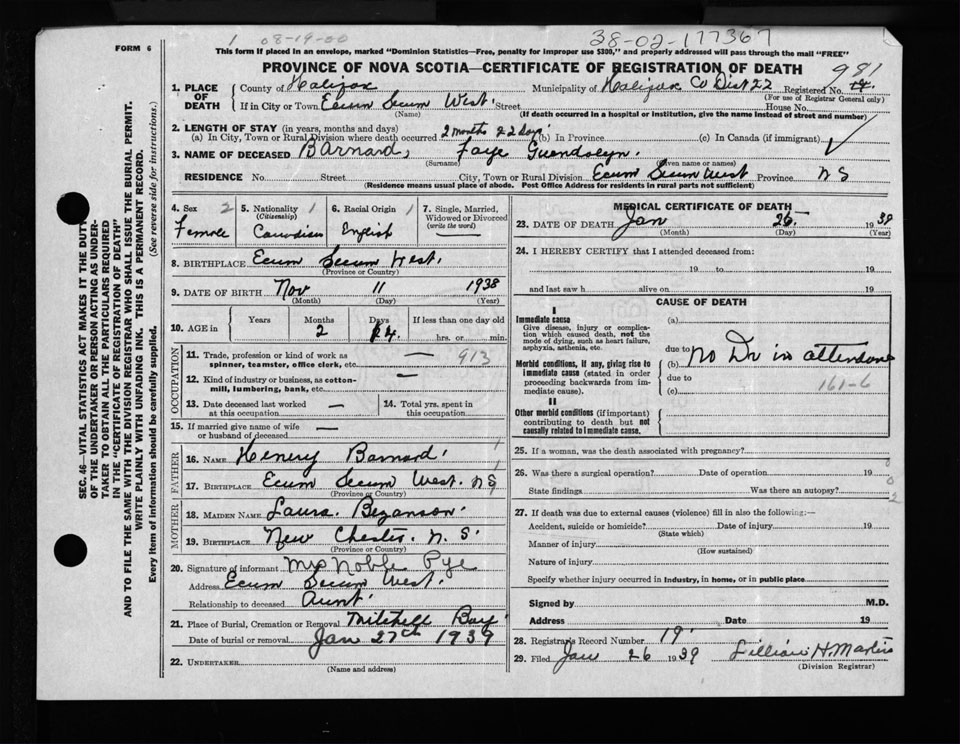 1 08-19-00
38-02-177367
FORM 6
This form if placed in an envelope, marked "Dominion Statistics—Free, penalty for improper use $300," and properly addressed will pass through the mail "FREE"
PROVINCE OF NOVA SCOTIA—CERTIFICATE OF REGISTRATION OF DEATH
981
1. PLACE OF DEATH
County of Halifax Municipality of Halifax Co Dist 22 Registered No.
(For use of Registrar General only)
If in City or Town Ecum Secum West. Street House No.
(Name) (If death occurred in a hospital or institution, give the name instead of street and number)
2. LENGTH OF STAY (in years, months and days)
(a) In City, Town or Rural Division where death occurred 2 months 22 days. (b) In Province (c) In Canada (if immigrant)
3. NAME OF DECEASED Barnard, Faye Guendolyn.
(Surname) (Given name or names)
RESIDENCE No. Street City, Town or Rural Division Ecum Secum West Province N S
(Residence means usual place of abode. Post Office Address for residents in rural parts not sufficient)
4. Sex 2 Female
5. Nationality 1 (Citizenship) Canadian
6. Racial Origin 1 English
7. Single, Married, Widowed or Divorced (write the word) —
8. BIRTHPLACE Ecum Secum West.
(Province or Country)
9. DATE OF BIRTH Nov 11 1938
(Month) (Day) (Year)
10. AGE in Years Months Days If less than one day old
2 hrs. or min.
OCCUPATION
11. Trade, profession or kind of work as spinner, teamster, office clerk, etc. — 913
12. Kind of industry or business, as cotton-mill, lumbering, bank, etc. —
13. Date deceased last worked at this occupation —
14. Total yrs. spent in this occupation
15. If married give name of wife or husband of deceased —
FATHER
16. NAME Henery Barnard.
17. BIRTHPLACE Ecum Secum West. N S
(Province or Country)
MOTHER
18. MAIDEN NAME Laura. Bezanson.
19. BIRTHPLACE New Chester. N. S.
(Province or Country)
20. Signature of informant Mrs Noble Pye
Address Ecum Secum West.
Relationship to deceased Aunt.
21. Place of Burial, Cremation or Removal Mitchell Bay.
Date of burial or removal Jan 27th 1939
22. UNDERTAKER
(Name and address)
MEDICAL CERTIFICATE OF DEATH
23. DATE OF DEATH Jan 25 1939
(Month) (Day) (Year)
24. I HEREBY CERTIFY that I attended deceased from:
19 to 19
and last saw h alive on 19
CAUSE OF DEATH
I
Immediate cause (a)
Give disease, injury or complication which caused death, not the mode of dying, such as heart failure, asphyxia, asthenia, etc.
due to
Morbid conditions, if any, giving rise to immediate cause (stated in order proceeding backwards from immediate cause).
(b) No Dr in attendance
due to
(c) 161-6
II
Other morbid conditions (if important) contributing to death but not causally related to immediate cause.
25. If a woman, was the death associated with pregnancy?
26. Was there a surgical operation? Date of operation 19
State findings Was there an autopsy?
27. If death was due to external causes (violence) fill in also the following:—
Accident, suicide or homicide? Date of injury 19
(State which)
Manner of injury
(How sustained)
Nature of injury
Specify whether injury occurred in industry, in home, or in public place
Signed by M.D.
Address Date 19
28. Registrar's Record Number 19.
29. Filed Jan 26 1939 Lillian H. Martin
(Division Registrar)
SEC. 46—VITAL STATISTICS ACT MAKES IT THE DUTY
OF THE UNDERTAKER OR PERSON ACTING AS UNDER-
TAKER TO OBTAIN ALL THE PARTICULARS REQUIRED
IN THE "CERTIFICATE OF REGISTRATION OF DEATH"
AND TO FILE THE SAME WITH THE DIVISION REGISTRAR WHO SHALL ISSUE THE BURIAL PERMIT.
WRITE PLAINLY WITH UNFADING INK. THIS IS A PERMANENT RECORD.
Every item of information should be carefully supplied. (See reverse side for instructions.)